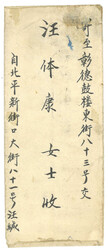 寄至彰德鼓楼東街八十三号交
汪体康女士收
自北平新街口大街八十一号汪缄